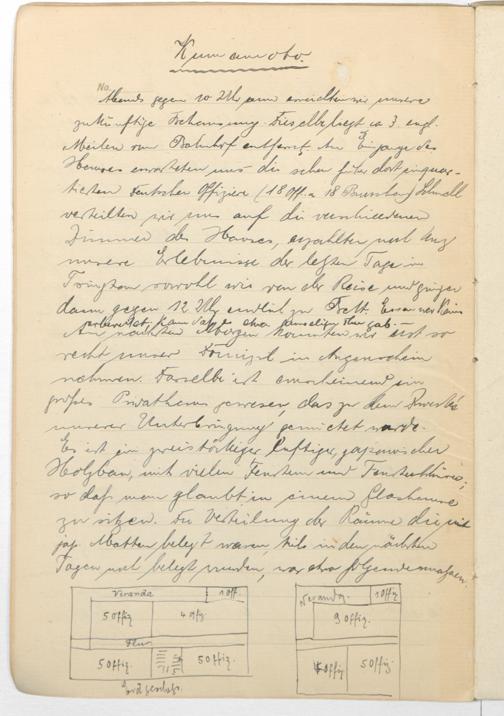 Kumamoto.
No.
Abends gegen 10 Uhr, erreichten wir unsere
zukünftige Behausung. Dieselbe liegt ca 3. engl.
Meilen vom Bahnhof entfernt. Am Eingange des
Hauses erwarteten uns die schon früher dort einquar-
tierten deutschen Offiziere (18 Off. u. 18 Burschen) Schnell
verteilten wir uns auf die verschiedenen
Zimmer des Hauses, erzählten noch kurz
unsere Erlebnisse der letzten Tage in
Tsingtau sowohl wie von der Reise und gingen
dann gegen 12 Uhr endlich zu Bett. Essen war
vorbereitet, kam
Am nächsten Morgen konnten wir erst so
recht unser Domizil in Augenschein
nehmen. Dasselbe ist anscheinend ein
großes Privathaus gewesen, das zu dem Zwecke
unserer Unterbringung gemietet wurde.
Es ist ein zweistöckiger luftiger, japanischer
Holzbau, mit vielen Fenstern und Fenstertüren,
so daß man glaubt in einem Glashause
zu sitzen. Die Verteilung der Räume die mit
jap. Matten belegt waren, teils in den nächsten
Tagen noch belegt wurden, war etwa folgendermaßen.
Veranda 1 Off.
5 Offiz. 4 Offiz.
Flur
5 Offiz. 5 Offiz.
Erdgeschoß.
Veranda 1 Offiz.
9 Offiz.
Offiz 5 Offiz.